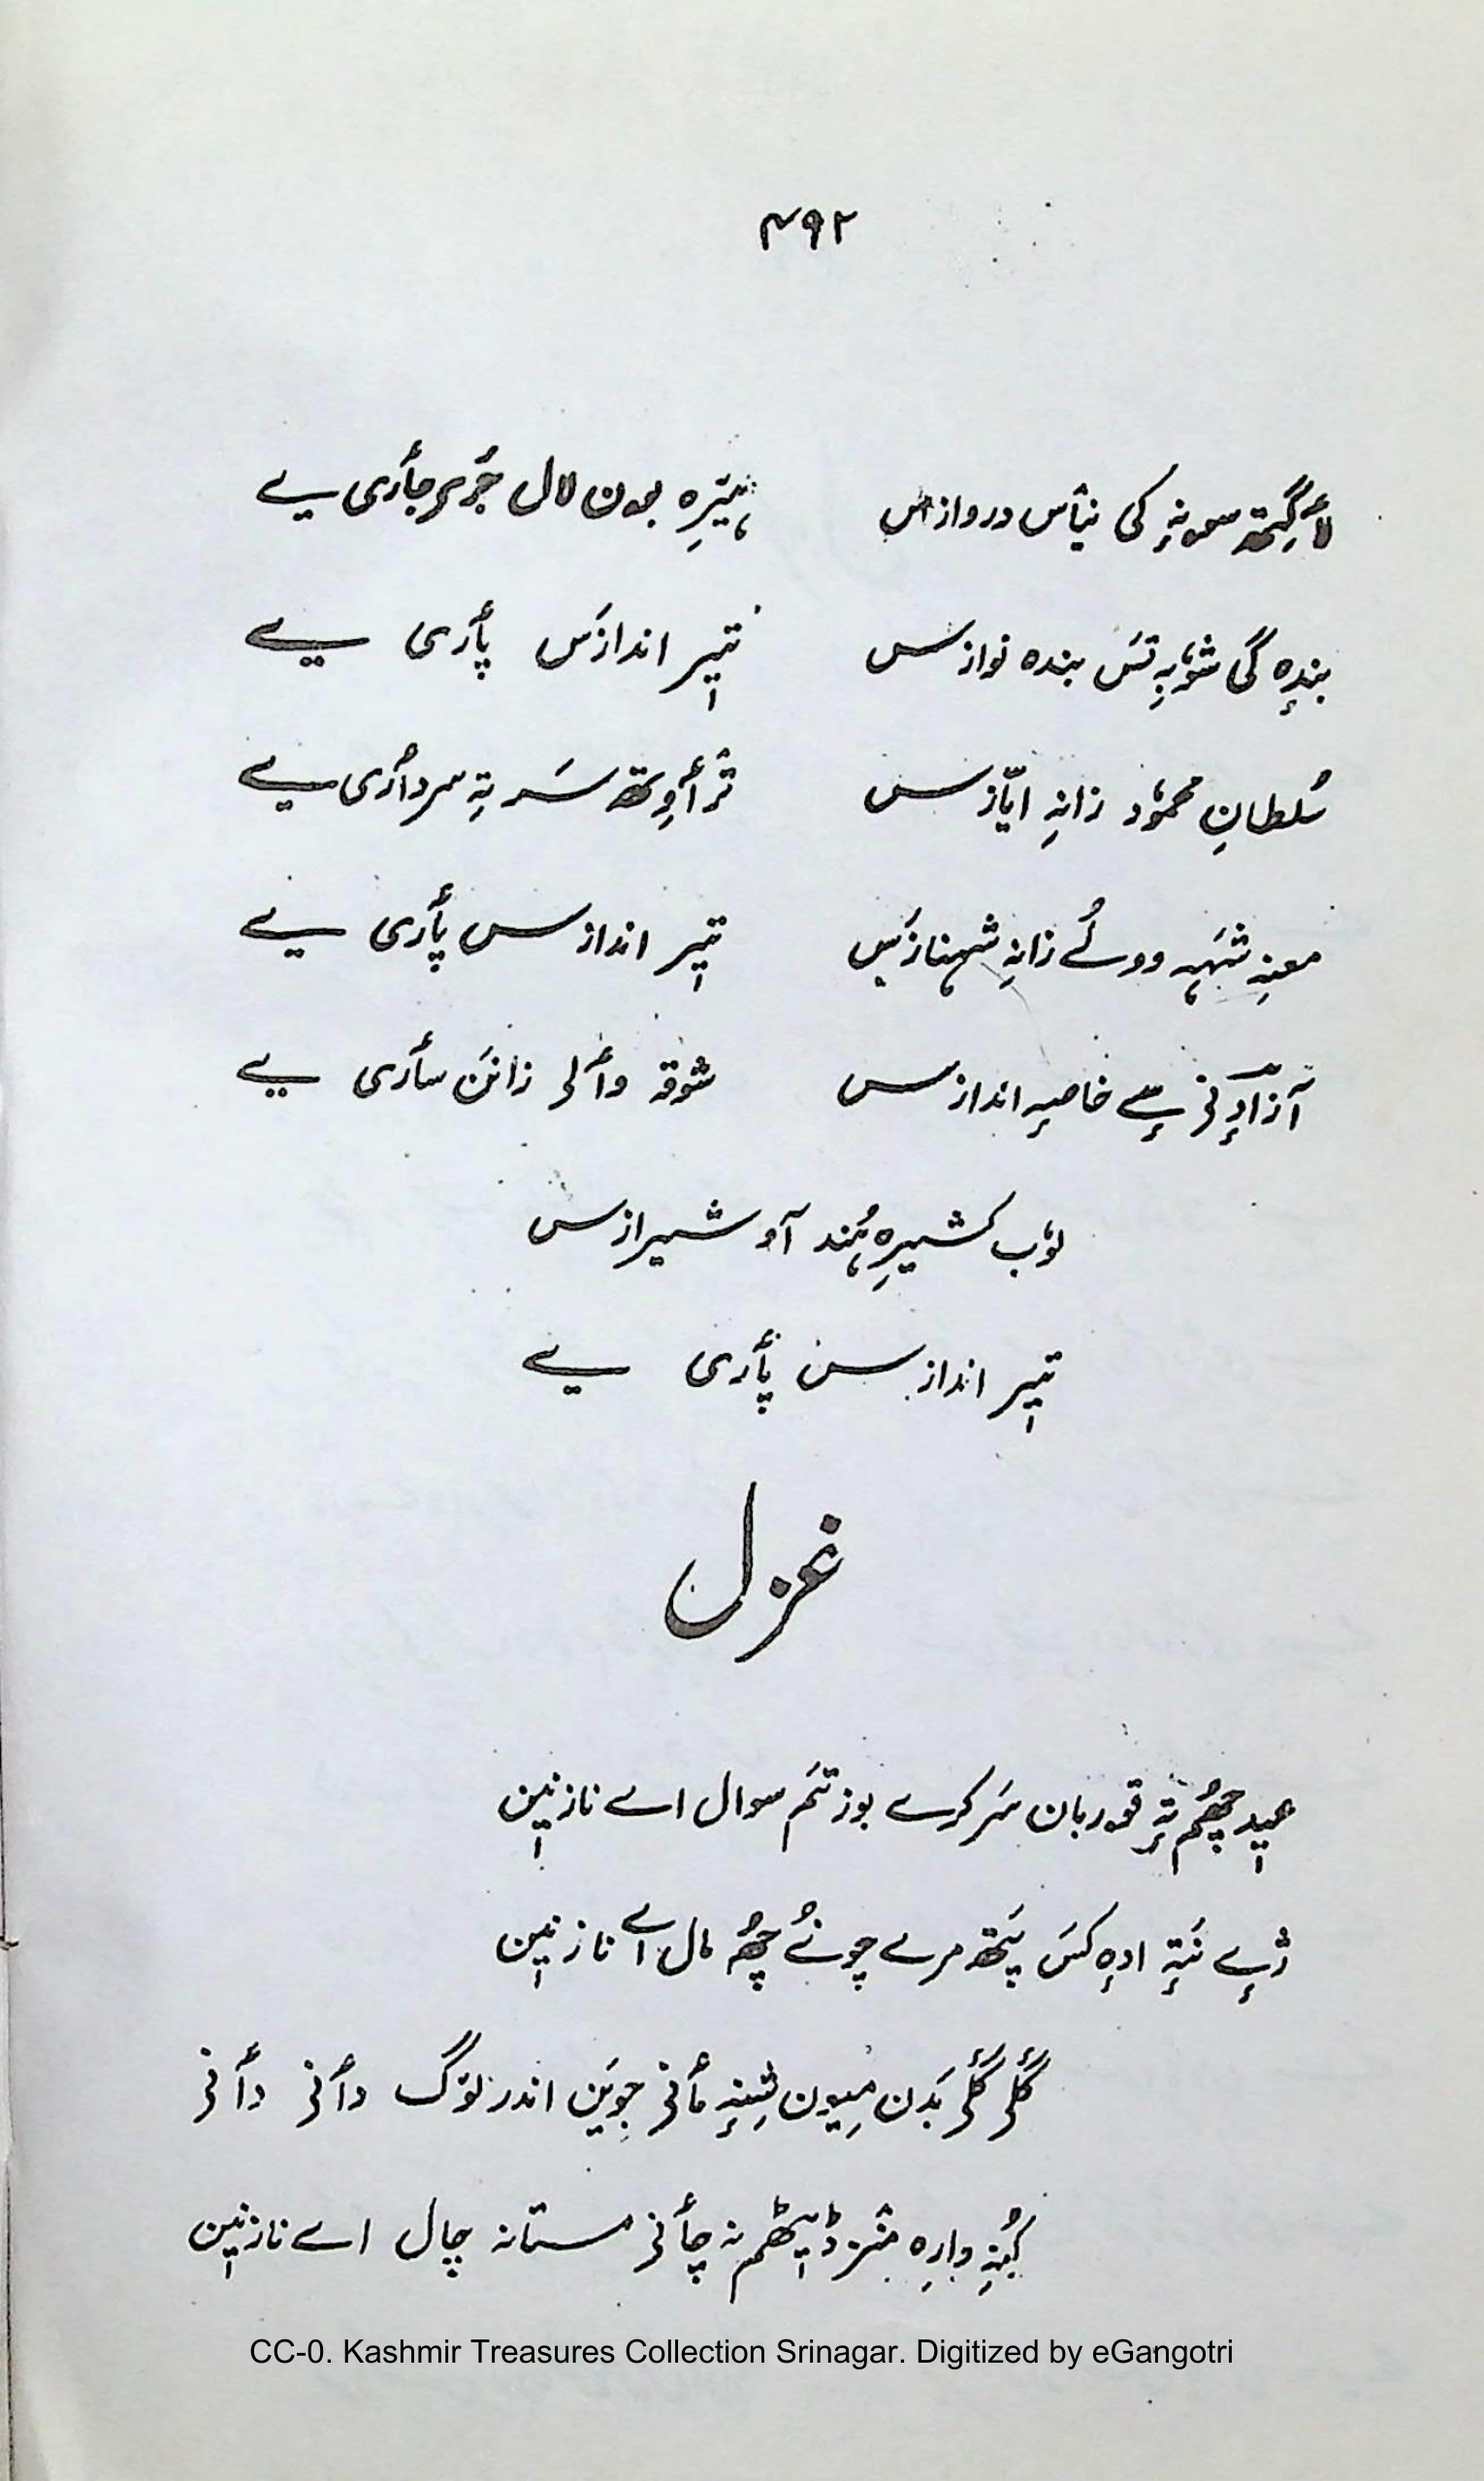 ۴۹۲
لأگِتھ سونہٕ کی نیٲس دروازس ہیٚرِہ بون لال جُرِ جأری یے
بندٕہ گی شوٗبہِ تَس بندہ نوازس تیٖر اندازَس پأری یے
سُلطانِ محموٗد زانہِ ایّازس ترٛأوِتھ سَر تہٕ سردأری یے
معنہِ شَہہٕ ووٚلُے زانہِ شہنازَس تیٖر اندازس پأری یے
آزادٕنی سٕے خاصہٕ اندازس شوقہ وألی زانَن سأری یے
لوٗب کشیرِہ ہُند آو شیرازس
تیٖر اندازس پأری یے
غزل
عیٖد چھُم تہٕ قوربان سَر کرے بوزتَم سوال اے نازنیٖن
ژٕے نَتہٕ ادٕہ کَس پَتھ مرے چونُے چھُہ مال اے نازنیٖن
گُلی گُلی بَدن میون شِینہٕ مأنی جویَن اندر لوٚگ دأنی دأنی
کُنہِ وارِہ منٛز ڈیٖٹھم نہ چأنی مستانہ چال اے نازنیٖن
CC-0. Kashmir Treasures Collection Srinagar. Digitized by eGangotri